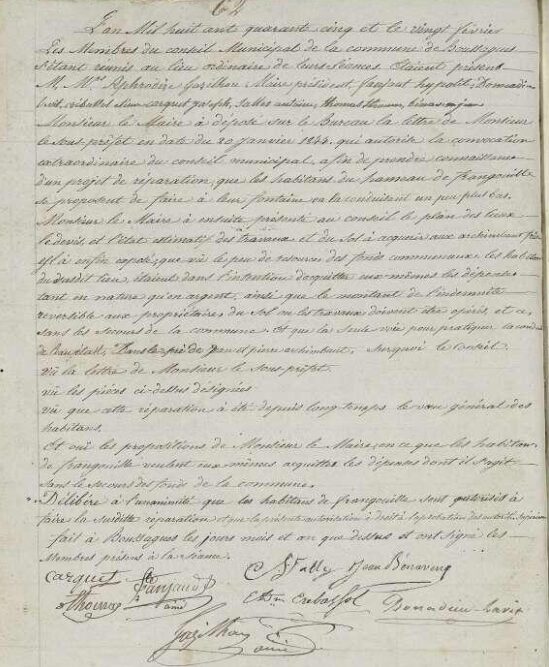 L'an Mil huit ant quarant cinq et le vingt février
Les Membres du conseil Municipal de la commune de Boussagues
s'étant réunis au lieu ordinaire de leurs séances étaient présent
M. Mrs Aphrodize Gazilhou Maire président, Jaufaut hypolite, Donnadieu
Monsieur le Maire à déposé sur le Bureau la lettre de Monsieur
le Sous préfet en date du 20 Janvier qui autorise la convocation
extraordinaire du conseil municipal, afin de prendre connaissance
d'un projet de réparation, que les habitans du hameau de frangouille
se proposent de faire à leur fontaine en la conduisant un peu plus bas.
Monsieur le Maire à ensuite présenté au conseil le plan des lieux
le devis et l'état estimatif des travaux et du sol à acquerir aux archimbaut
il à enfin exposé, que vu le peu de resources des fonds communaux les habitans
du susdit lieu, étaient dans l'intention d'acquitter eux mêmes les dépenses
tant en nature qu'en argent, ainsi que le montant de l'indemnité
reversible aux propriétaires du sol ou les travaux doivent être opérés, et ce,
sans les secours de la commune. Et que la seule voie pour pratiquer la conduite
de l'eau était dans le pré de Jean et pierre archimbaut. Surquoi le Conseil
vu la lettre de Monsieur le Sous préfet
vu les pièces ci-dessus designées
vu que cette réparation à été depuis long-temps le vœu général des
habitans.
Et ouï les propositions de Monsieur le Maire, en ce que les habitans
de frangouille veulent eux mêmes acquitter les dépenses dont il s'agit
sans le secours des fonds de la commune.
Délibère à l'unanimité que les habitans de frangouille sont autorisés à
faire la susditte réparation et que la présente autorisation à droit à l'aprobation des autorités supérieures
fait à Boussagues les jours mois et an que dessus et ont signé les
Membres présens à la séance.
Carquet
Jean Bénavenq
Donnadieu